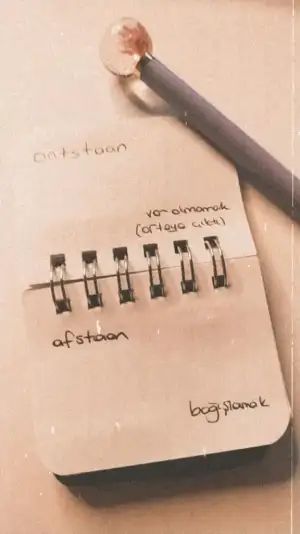 ontstaan
var olmamak
(ortaya çıktı)
afstaan
bağışlamak